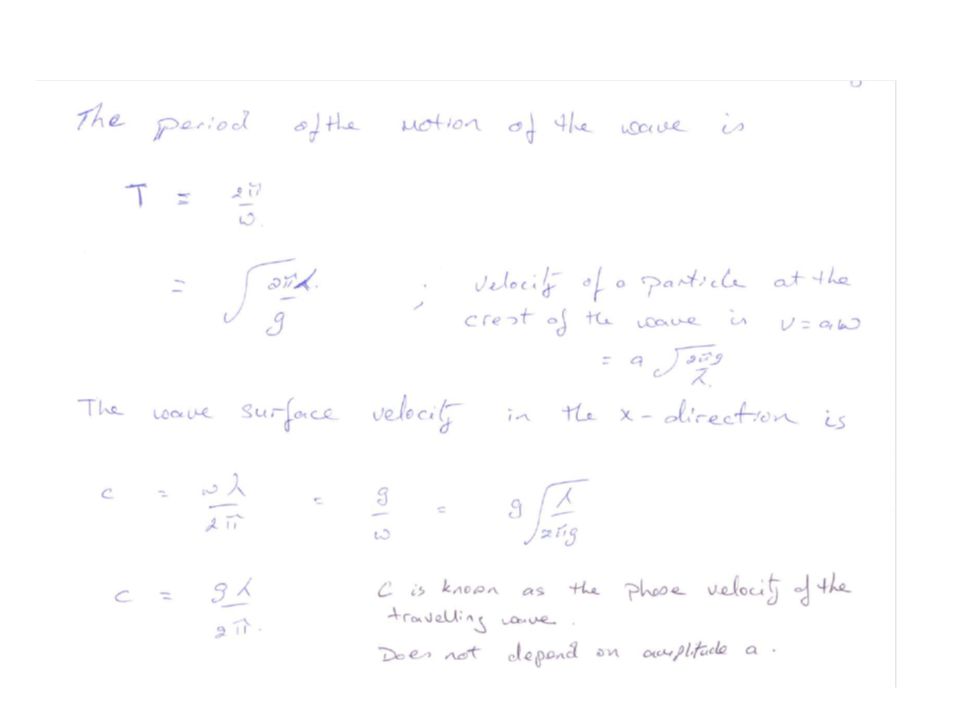 The period of the motion of the wave is
T = 2π/ω.
= √(2πλ/g) ; velocity of a particle at the
crest of the wave is v = aω
= a √(2πg/λ).
The wave surface velocity in the x-direction is
c = ωλ/2π = g/ω = g √(λ/2πg)
c = gλ/2π. C is known as the phase velocity of the
travelling wave.
Does not depend on amplitude a.